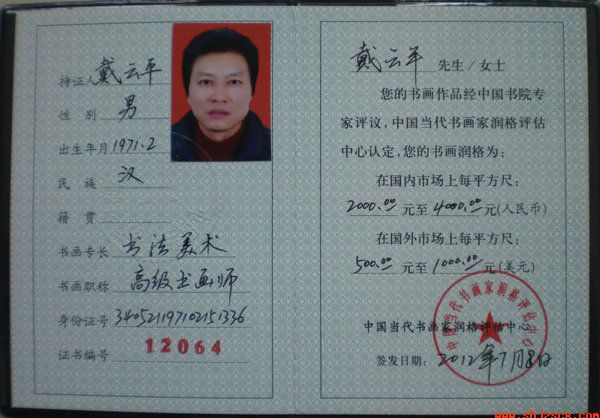 持证人 戴云平
性别 男
出生年月 1971.2
民族 汉
籍贯
书画专长 书法美术
书画职称 高级书画师
身份证号 340521197102151336
证书编号 12064
戴云平 先生/女士
您的书画作品经中国书院专
家评议，中国当代书画家润格评估
中心认定，您的书画润格为：
在国内市场上每平方尺：
2000.00 元至 4000.00 元(人民币)
在国外市场上每平方尺：
500.00 元至 1000.00 元(美元)
中国当代书画家润格评估中心
中国当代书画家润格评估中心
签发日期：2012年7月8日